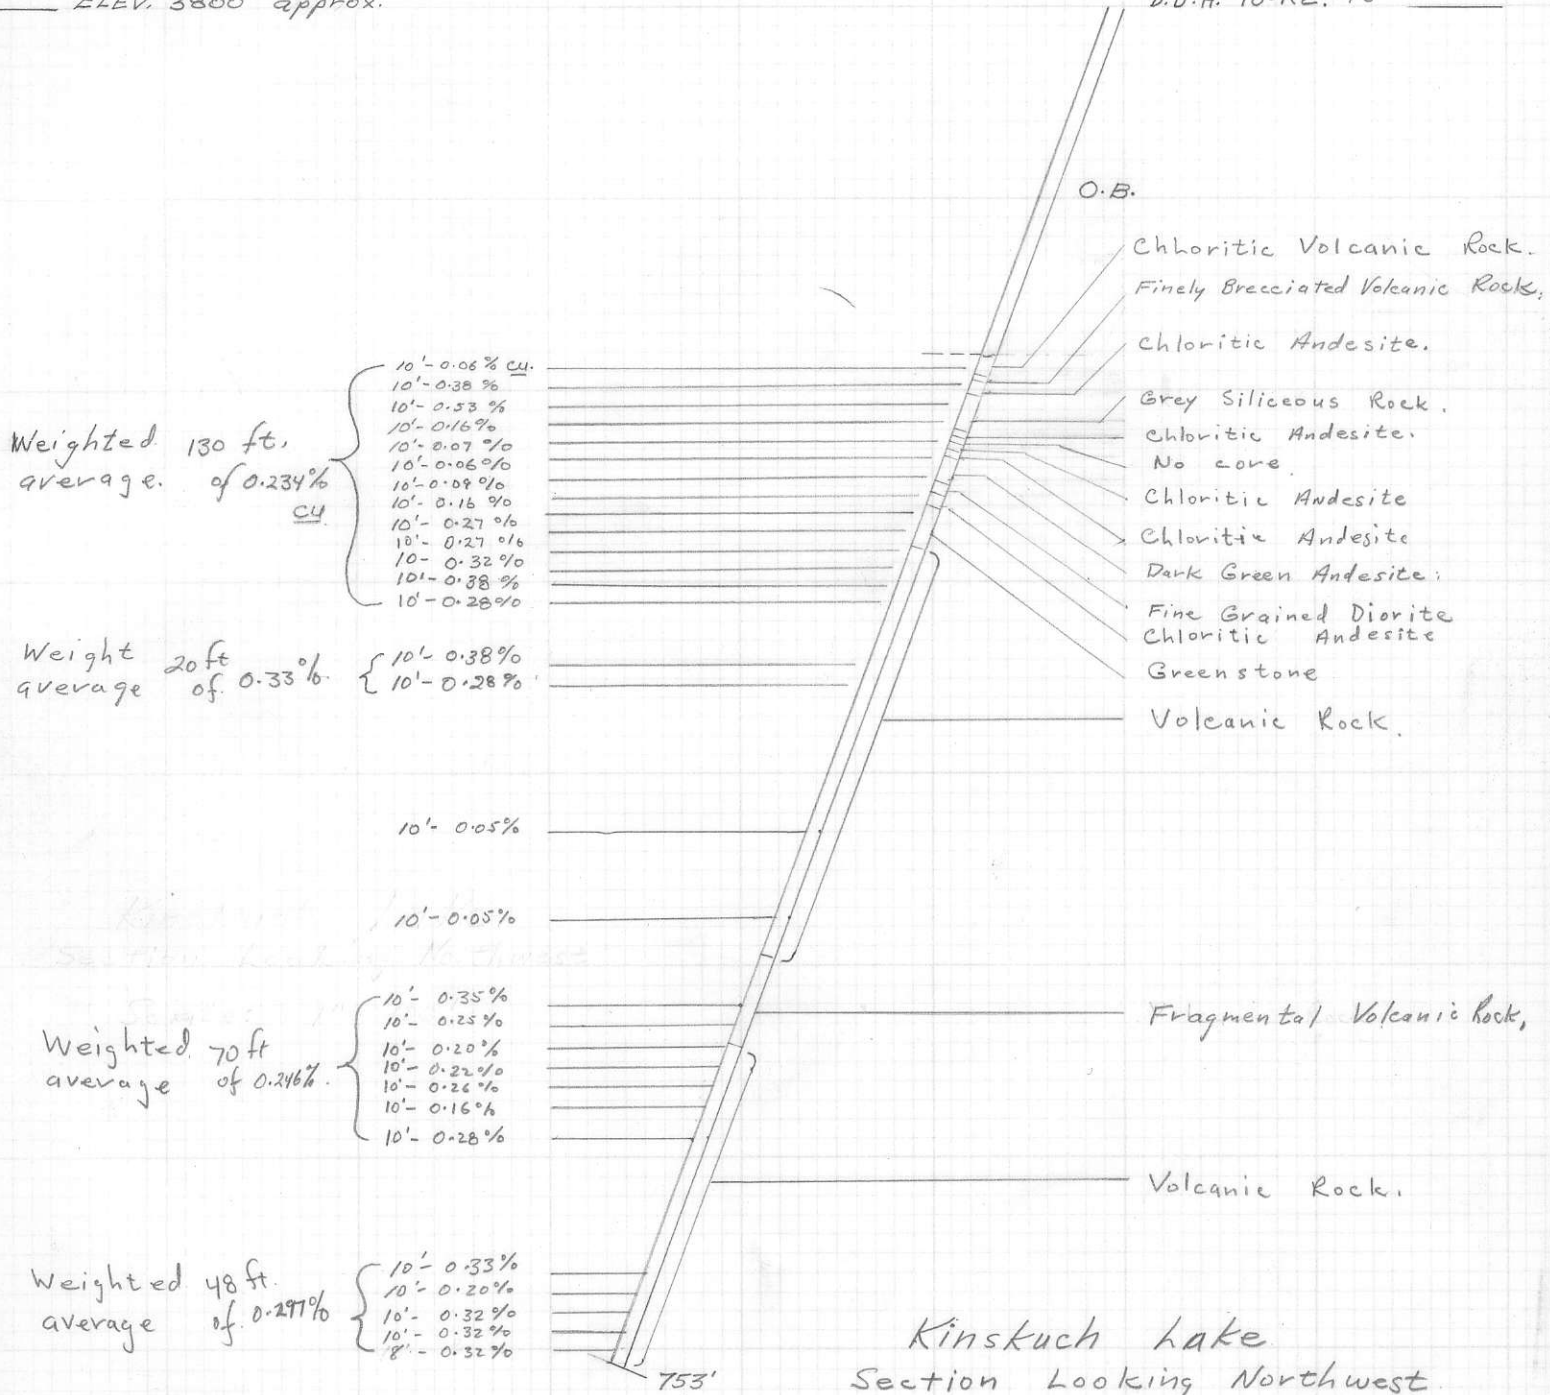 ELEV. 3800 approx.
O.B.
Chhoritic Volcanic Rock.
Finely Brecciated Volcanic Rock.
Chloritic Andesite.
Grey Siliceous Rock.
Chloritic Andesite.
No core.
Chloritic Andesite
Chloritic Andesite
Dark Green Andesite.
Fine Grained Diorite
Chloritic Andesite
Greenstone
Volcanic Rock.
Fragmental Volcanic Rock,
Volcanic Rock.
Weighted 130 ft.
average. of 0.234%
CU
10'-0.06% CU.
10'-0.38%
10'-0.53%
10'-0.16%
10'-0.07%
10'-0.06%
10'-0.09%
10'-0.16%
10'-0.27%
10'-0.27%
10-0.32%
10'-0.38%
10'-0.28%
Weight 20 ft
average of 0.33%
10'-0.38%
10'-0.28%
10'-0.05%
10'-0.05%
Weighted 70 ft
average of 0.246%.
10'-0.35%
10'-0.25%
10'-0.20%
10'-0.22%
10'-0.26%
10'-0.16%
10'-0.28%
Weighted 48 ft.
average of 0.297%
10'-0.33%
10'-0.20%
10'-0.32%
10'-0.32%
8'-0.32%
753'
Kinskuch Lake
Section Looking Northwest